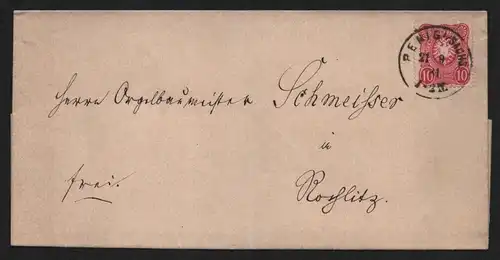 PENIG
10 10
Herrn Orgelbaumeister Schmeisser
in
frei.
Rochlitz.